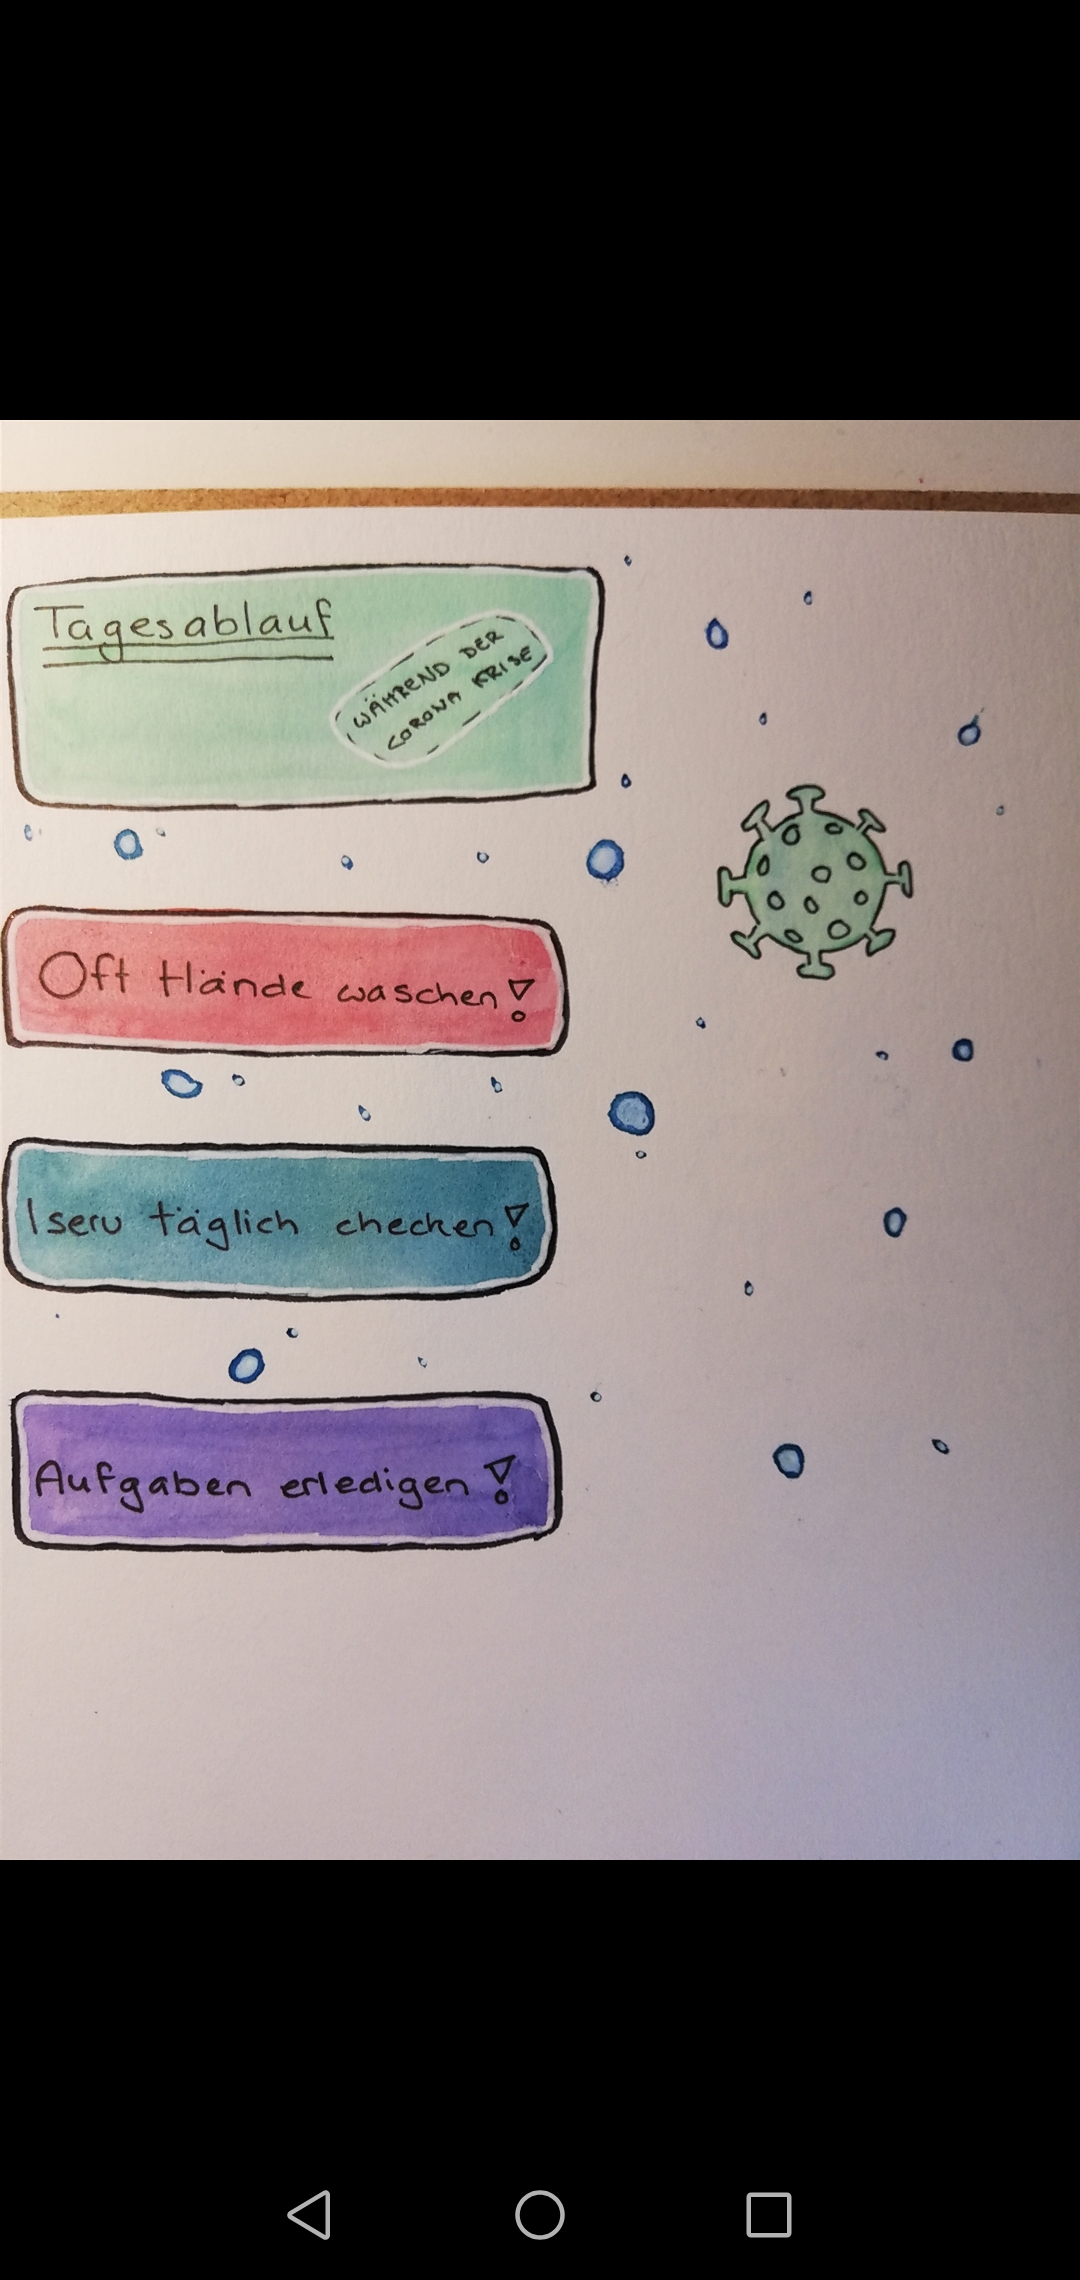 Tagesablauf
WÄHREND DER
CORONA KRISE
Oft Hände waschen!
Iserv täglich checken!
Aufgaben erledigen!